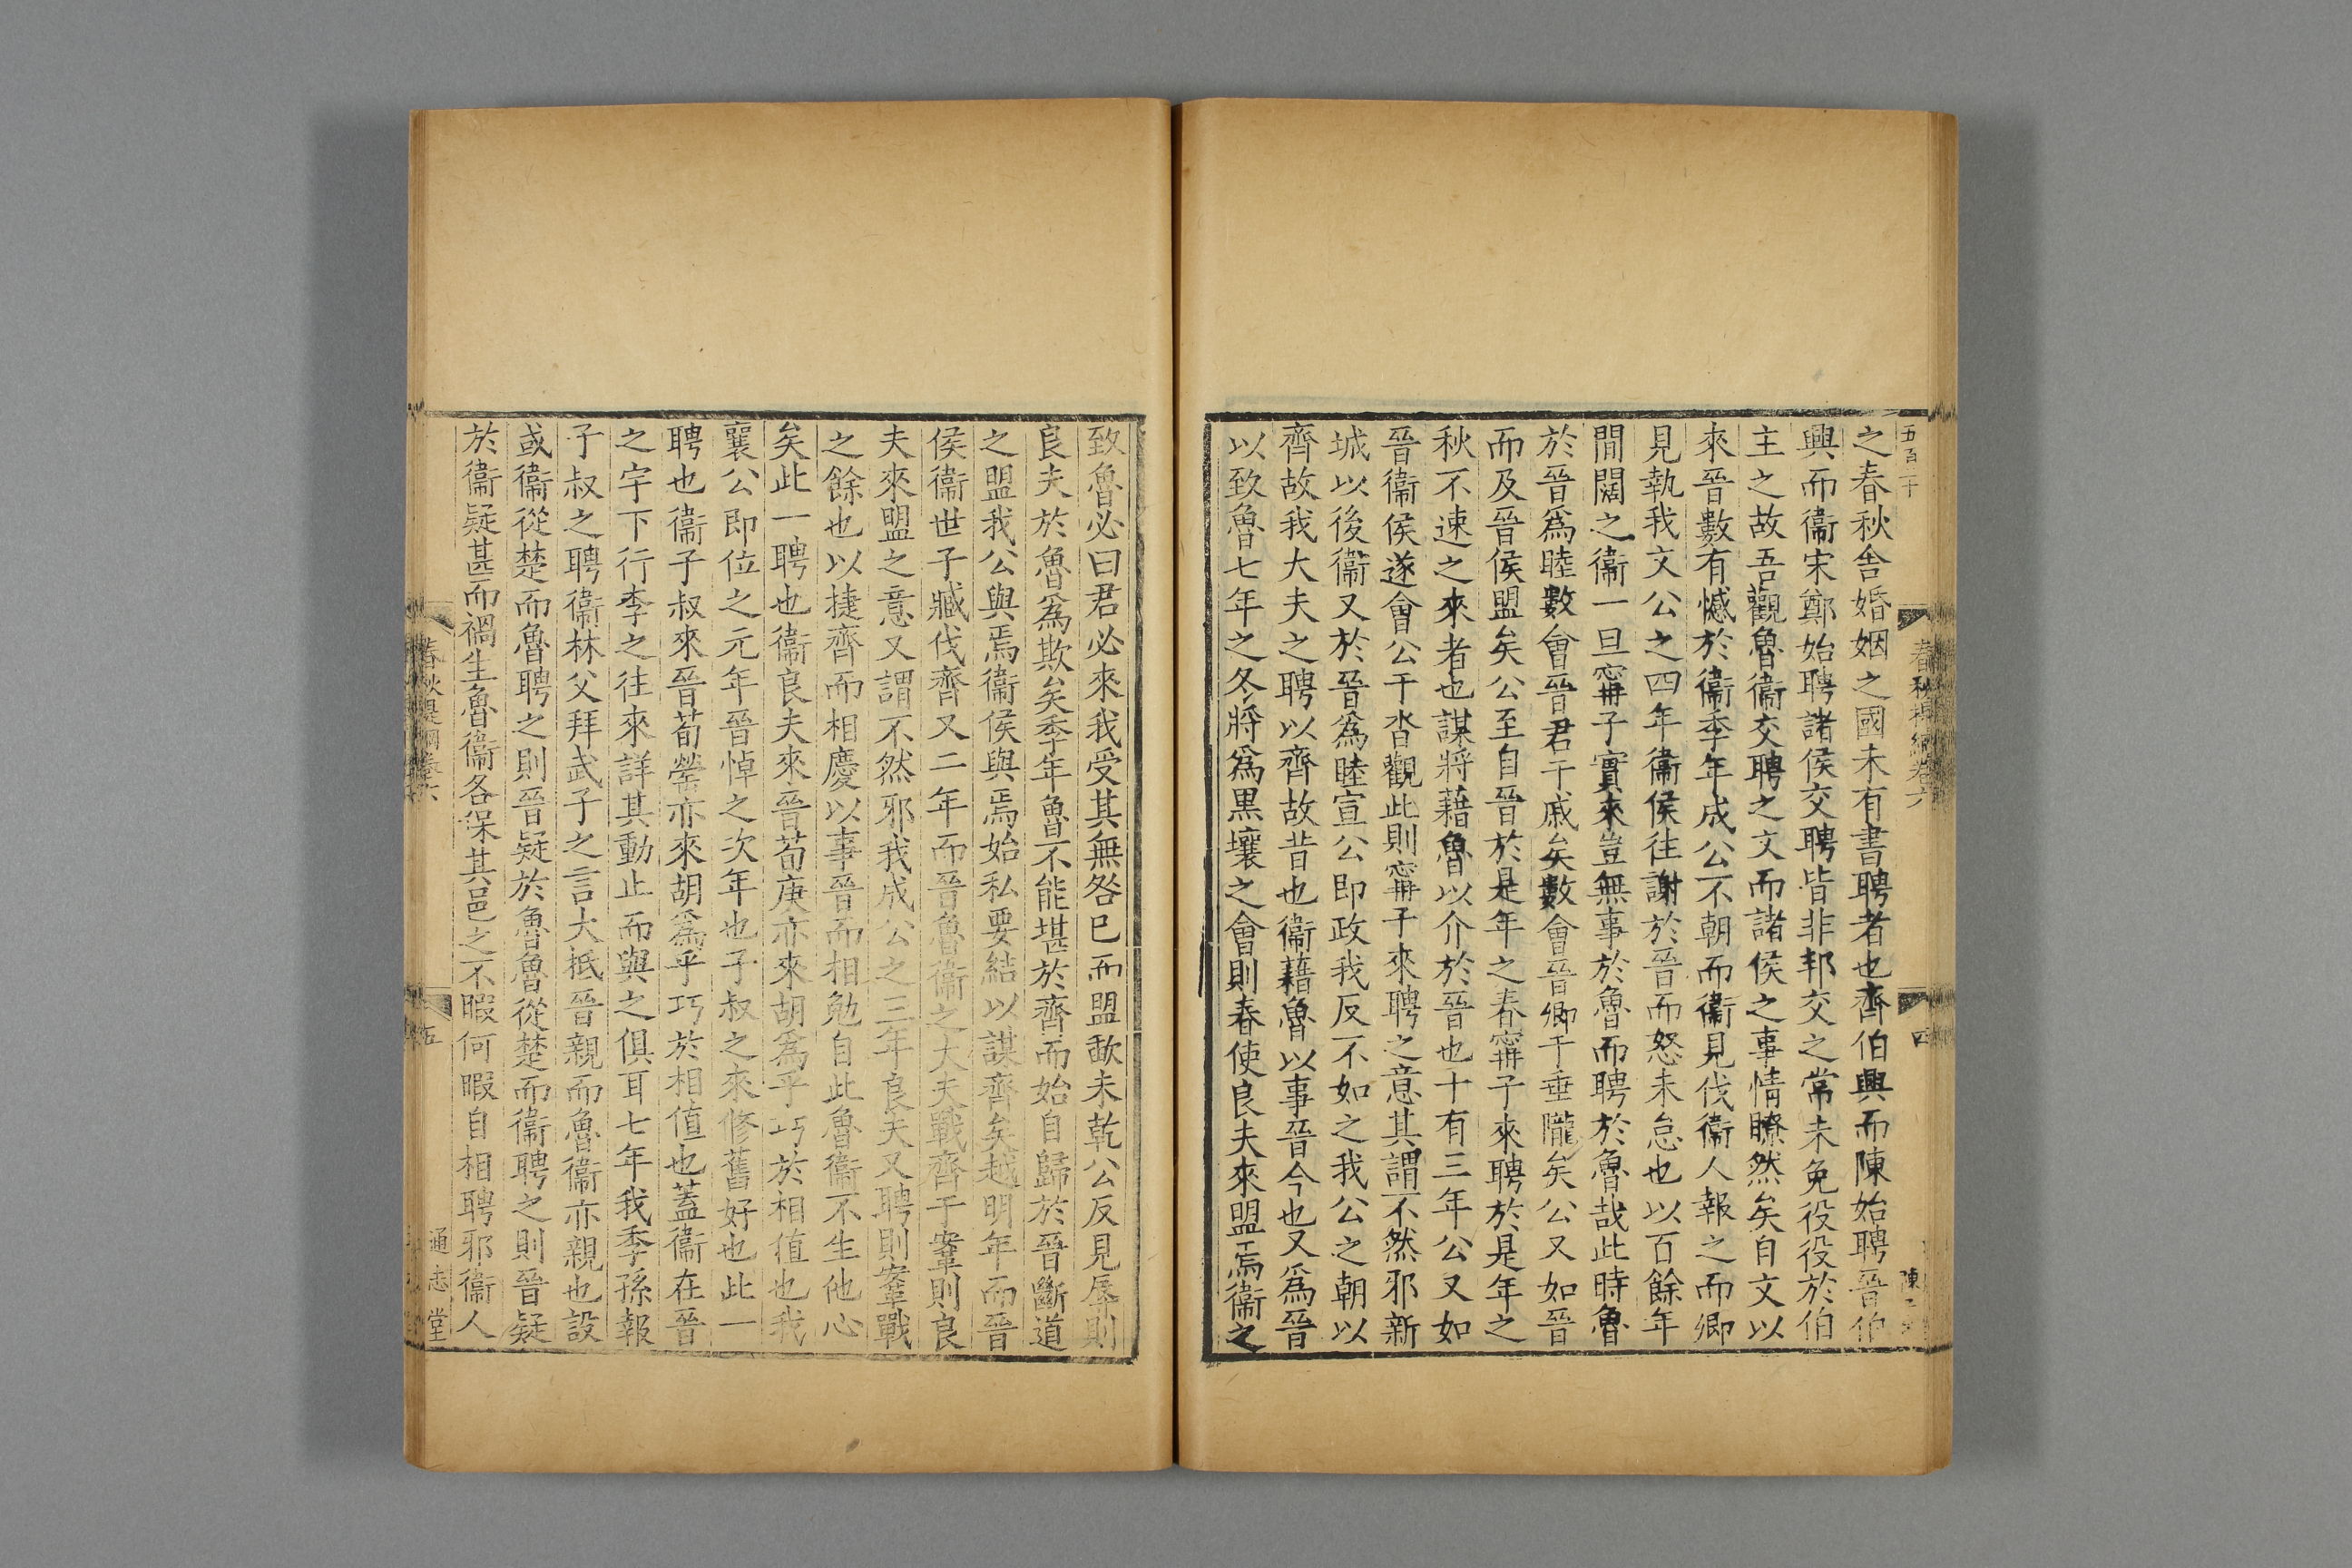 五百二十
春秋提綱卷六
四
之春秋舍婚姻之國未有書聘者也齊伯興而陳始聘晉伯
興而衞宋鄭始聘諸侯交聘皆非邦交之常未免役役於伯
主之故吾觀魯衞交聘之文而諸侯之事情瞭然矣自文以
來晉數有憾於衞季年成公不朝而衞見伐衞人報之而卿
見執我文公之四年衞侯往謝於晉而怒未怠也以百餘年
間闊之衞一旦甯子實來豈無事於魯而聘於魯哉此時魯
於晉爲睦數會晉君于戚矣數會晉卿于垂隴矣公又如晉
而及晉侯盟矣公至自晉於是年之春甯子來聘於是年之
秋不速之來者也謀將藉魯以介於晉也十有三年公又如
晉衞侯遂會公于沓觀此則甯子來聘之意其謂不然邪新
城以後衞又於晉爲睦宣公即政我反不如之我公之朝以
齊故我大夫之聘以齊故昔也衞藉魯以事晉今也又爲晉
以致魯七年之冬將爲黒壤之會則春使良夫來盟焉衞之
致魯必曰君必來我受其無咎巳而盟歃未乾公反見辱則
良夫於魯爲欺矣季年魯不能堪於齊而始自歸於晉斷道
之盟我公與焉衞侯與焉始私要結以謀齊矣越明年而晉
侯衞世子臧伐齊又二年而晉魯衞之大夫戰齊于鞌則良
夫來盟之意又謂不然邪我成公之三年良夫又聘則鞌戰
之餘也以捷齊而相慶以事晉而相勉自此魯衞不生他心
矣此一聘也衞良夫來晉荀庚亦來胡爲乎巧於相值也我
襄公即位之元年晉悼之次年也子叔之來修舊好也此一
聘也衞子叔來晉荀罃亦來胡爲乎巧於相值也蓋衞在晉
之宇下行李之往來詳其動止而與之俱耳七年我季孫報
子叔之聘衞林父拜武子之言大抵晉親而魯衞亦親也設
或衞從楚而魯聘之則晉疑於魯魯從楚而衞聘之則晉疑
於衞疑甚而禍生魯衞各保其邑之不暇何暇自相聘邪衞人
春秋提綱卷六
五
通志堂